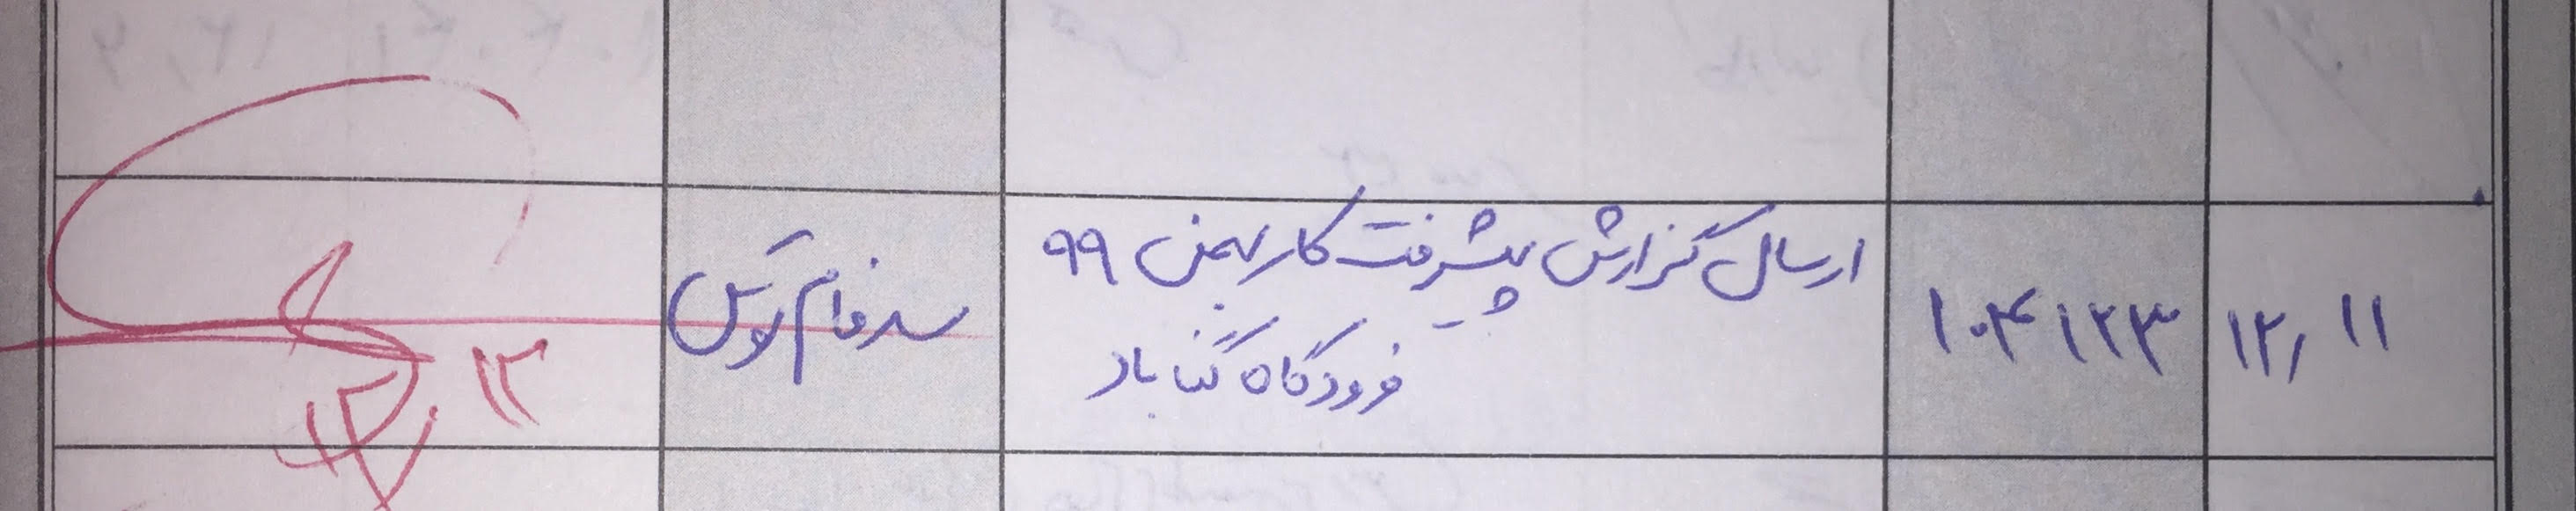 ۱۲٫۱۱
۱۰۴۱۲۳
ارسال گزارش پیشرفت کار بهمن ۹۹
فرودگاه گناباد
توس
۱۲٫۱۳